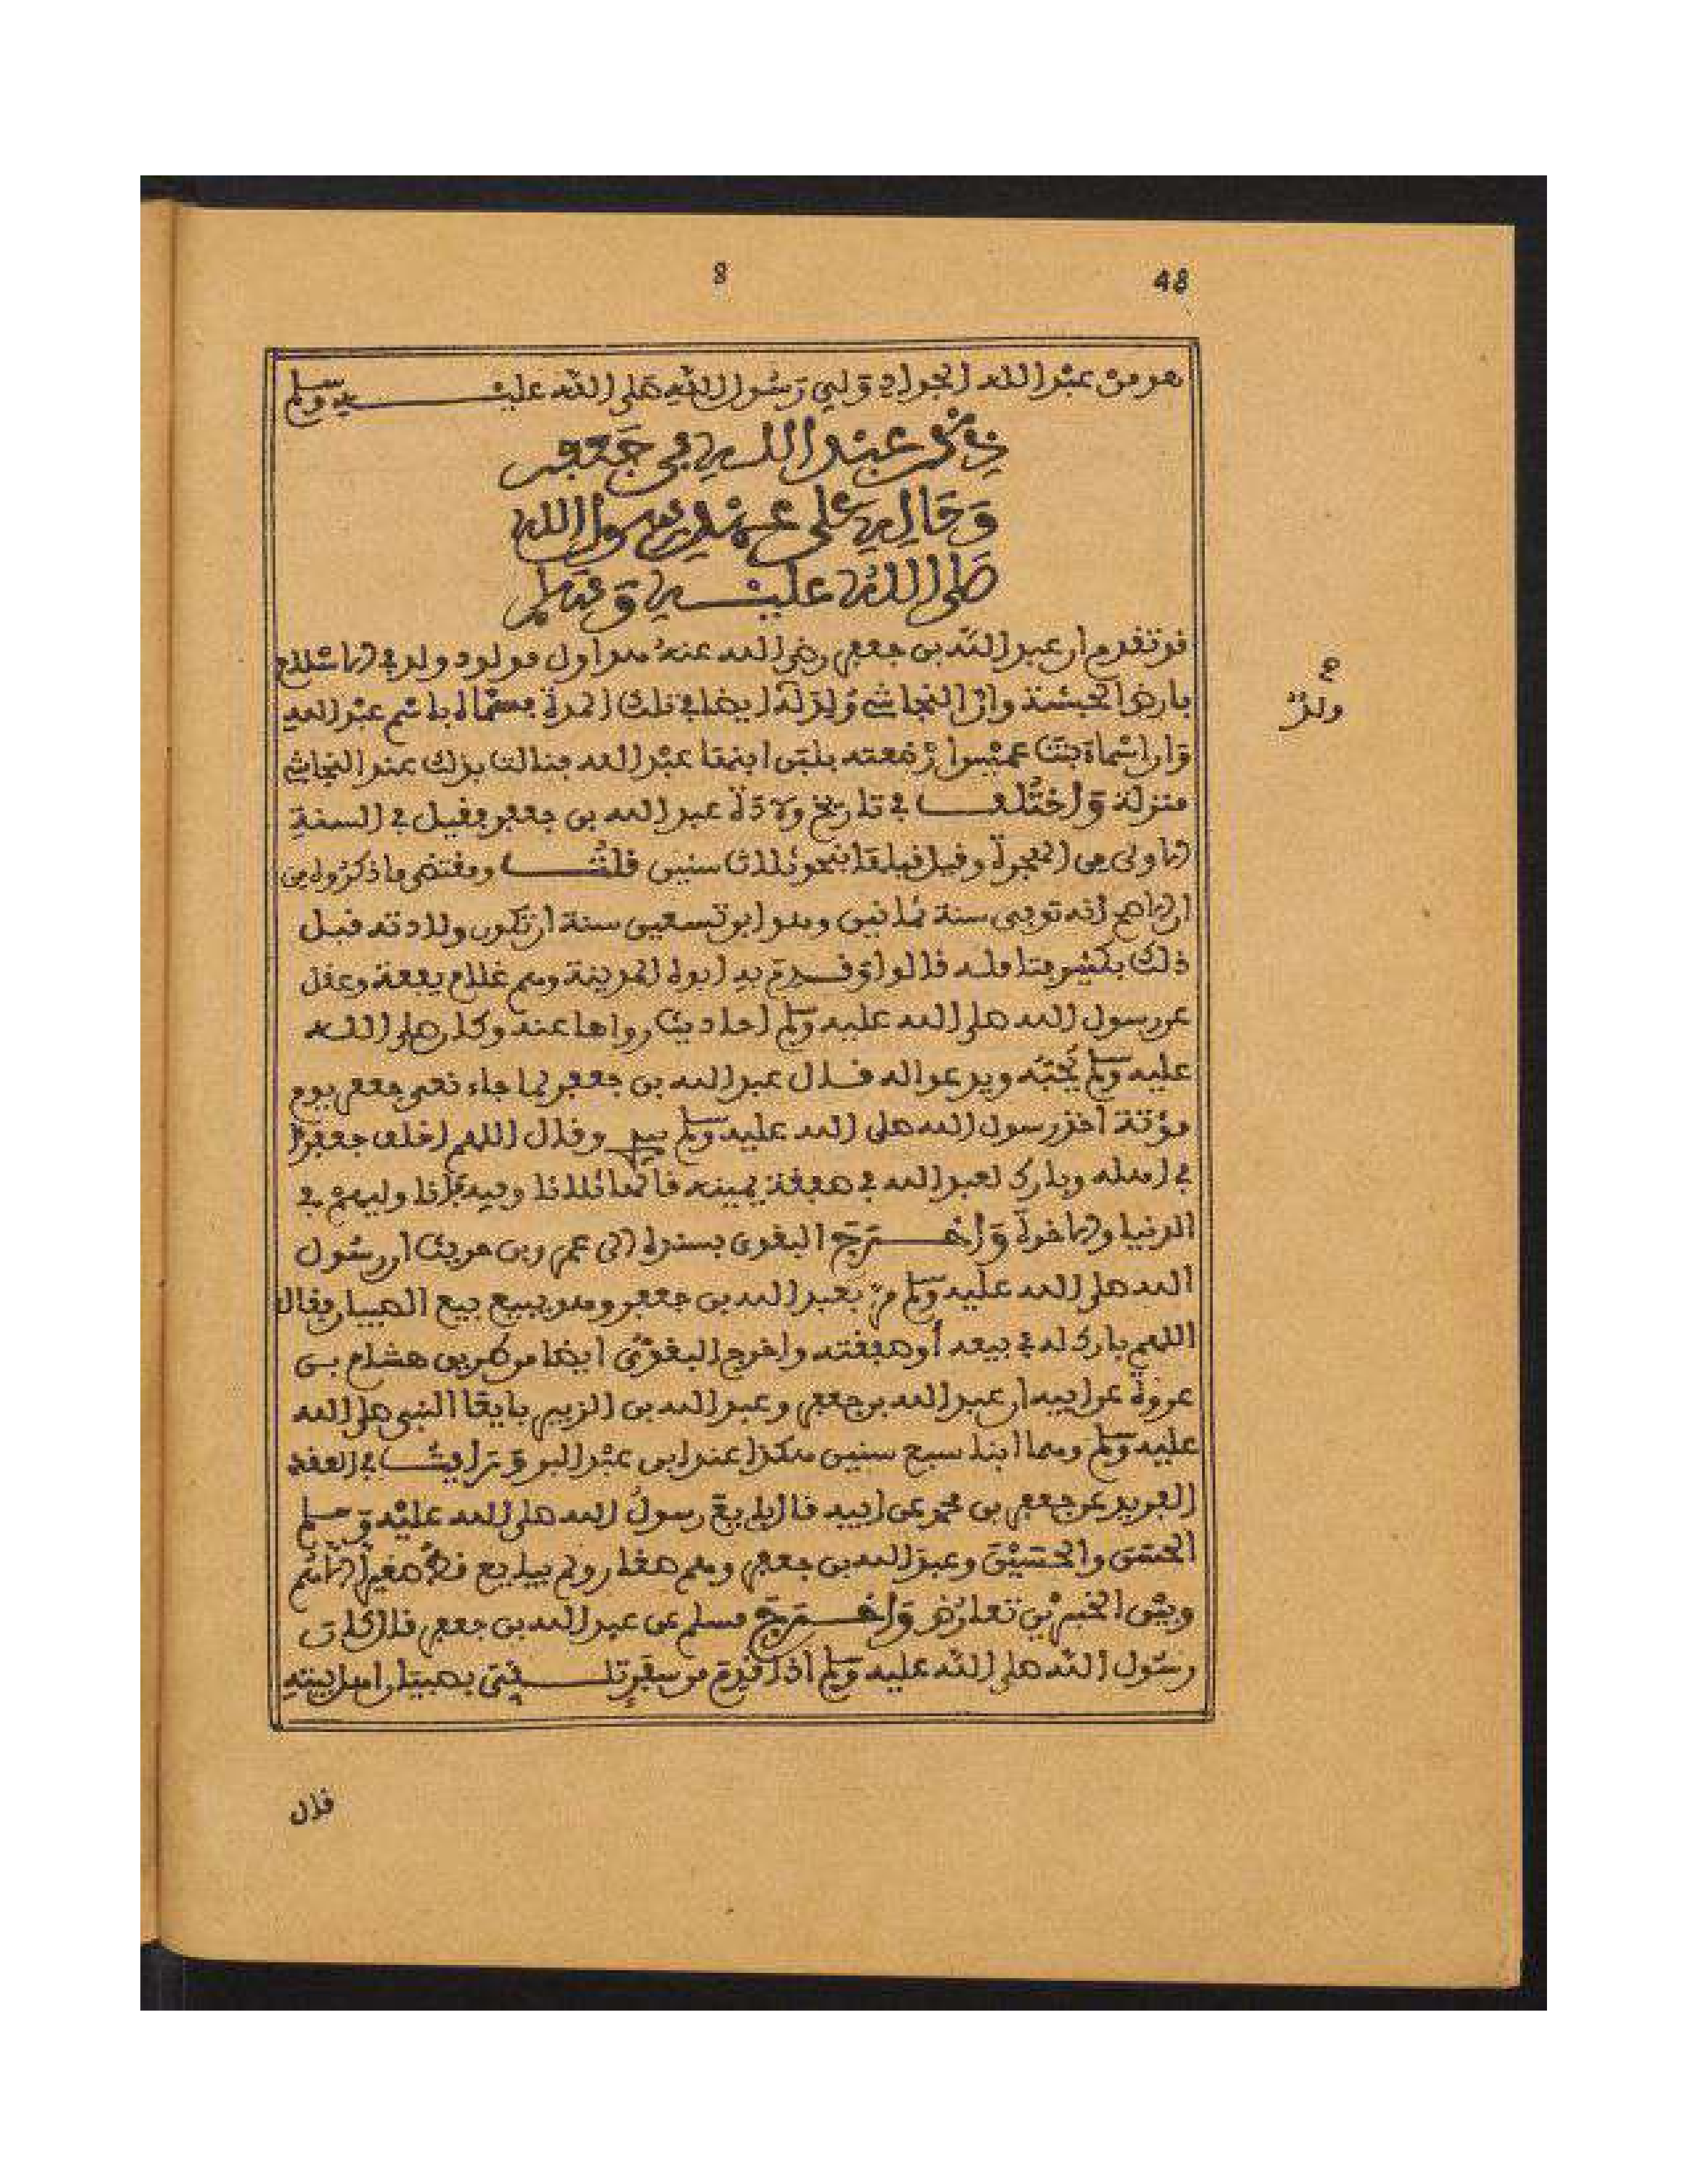 8
48
هو من عبد الله الجواد ولي رسول الله صلى الله عليه وسلم
ذكر عبد الله بن جعفر
وحاله على عهد رسول الله
صلى الله عليه وسلم
قد تقدم أن عبد الله بن جعفر رضي الله عنه هو أول مولود ولد في الاسلام
بارض الحبشة وان النجاشي ولد له ايضا في تلك المدة فسماه باسم عبد الله
وأن أسماء بنت عميس أرضعته بلبن ابنها عبد الله فنالت بذلك عند النجاشي
منزلة واختلف في تاريخ ولادة عبد الله بن جعفر فقيل في السنة
الاولى من الهجرة وقيل قبلها بنحو ثلاث سنين قلت ومقتضى ما ذكروه من
انه توفى سنة ثمانين وهو ابن تسعين سنة ان تكون ولادته قبل
ذلك بكثير فتامله قالوا وقدم به ابوه المدينة وهو غلام يفعة وعقل
عن رسول الله صلى الله عليه وسلم احاديث رواها عنه وكان صلى الله
عليه وسلم يحبه ويدعو له قال عبد الله بن جعفر لما جاء نعي جعفر يوم
مؤتة اخذ رسول الله صلى الله عليه وسلم بيدي وقال اللهم اخلف جعفرا
في اهله وبارك لعبد الله في صفقة يمينه قالها ثلاثا وفيه انا وليهم في
الدنيا والاخرة وأخرج البغوي بسنده الى عمرو بن حريث ان رسول
الله صلى الله عليه وسلم مر بعبد الله بن جعفر وهو يبيع بيع الصبيان فقال
اللهم بارك له في بيعه أو صفقته واخرج البغوي ايضا من طريق هشام بن
عروة عن ابيه ان عبد الله بن جعفر وعبد الله بن الزبير بايعا النبي صلى الله
عليه وسلم وهما ابنا سبع سنين هكذا عند ابن عبد البر ورايت في العقد
الفريد عن جعفر بن محمد عن ابيه قال بايع رسول الله صلى الله عليه وسلم
الحسن والحسين وعبد الله بن جعفر وهم صغار ولم يبايع قط صغير الا هم
وبين الخبرين تعارض وأخرج مسلم عن عبد الله بن جعفر قال كان
رسول الله صلى الله عليه وسلم اذا قدم من سفر تلقي بصبيان اهل بيته
ولد
قال